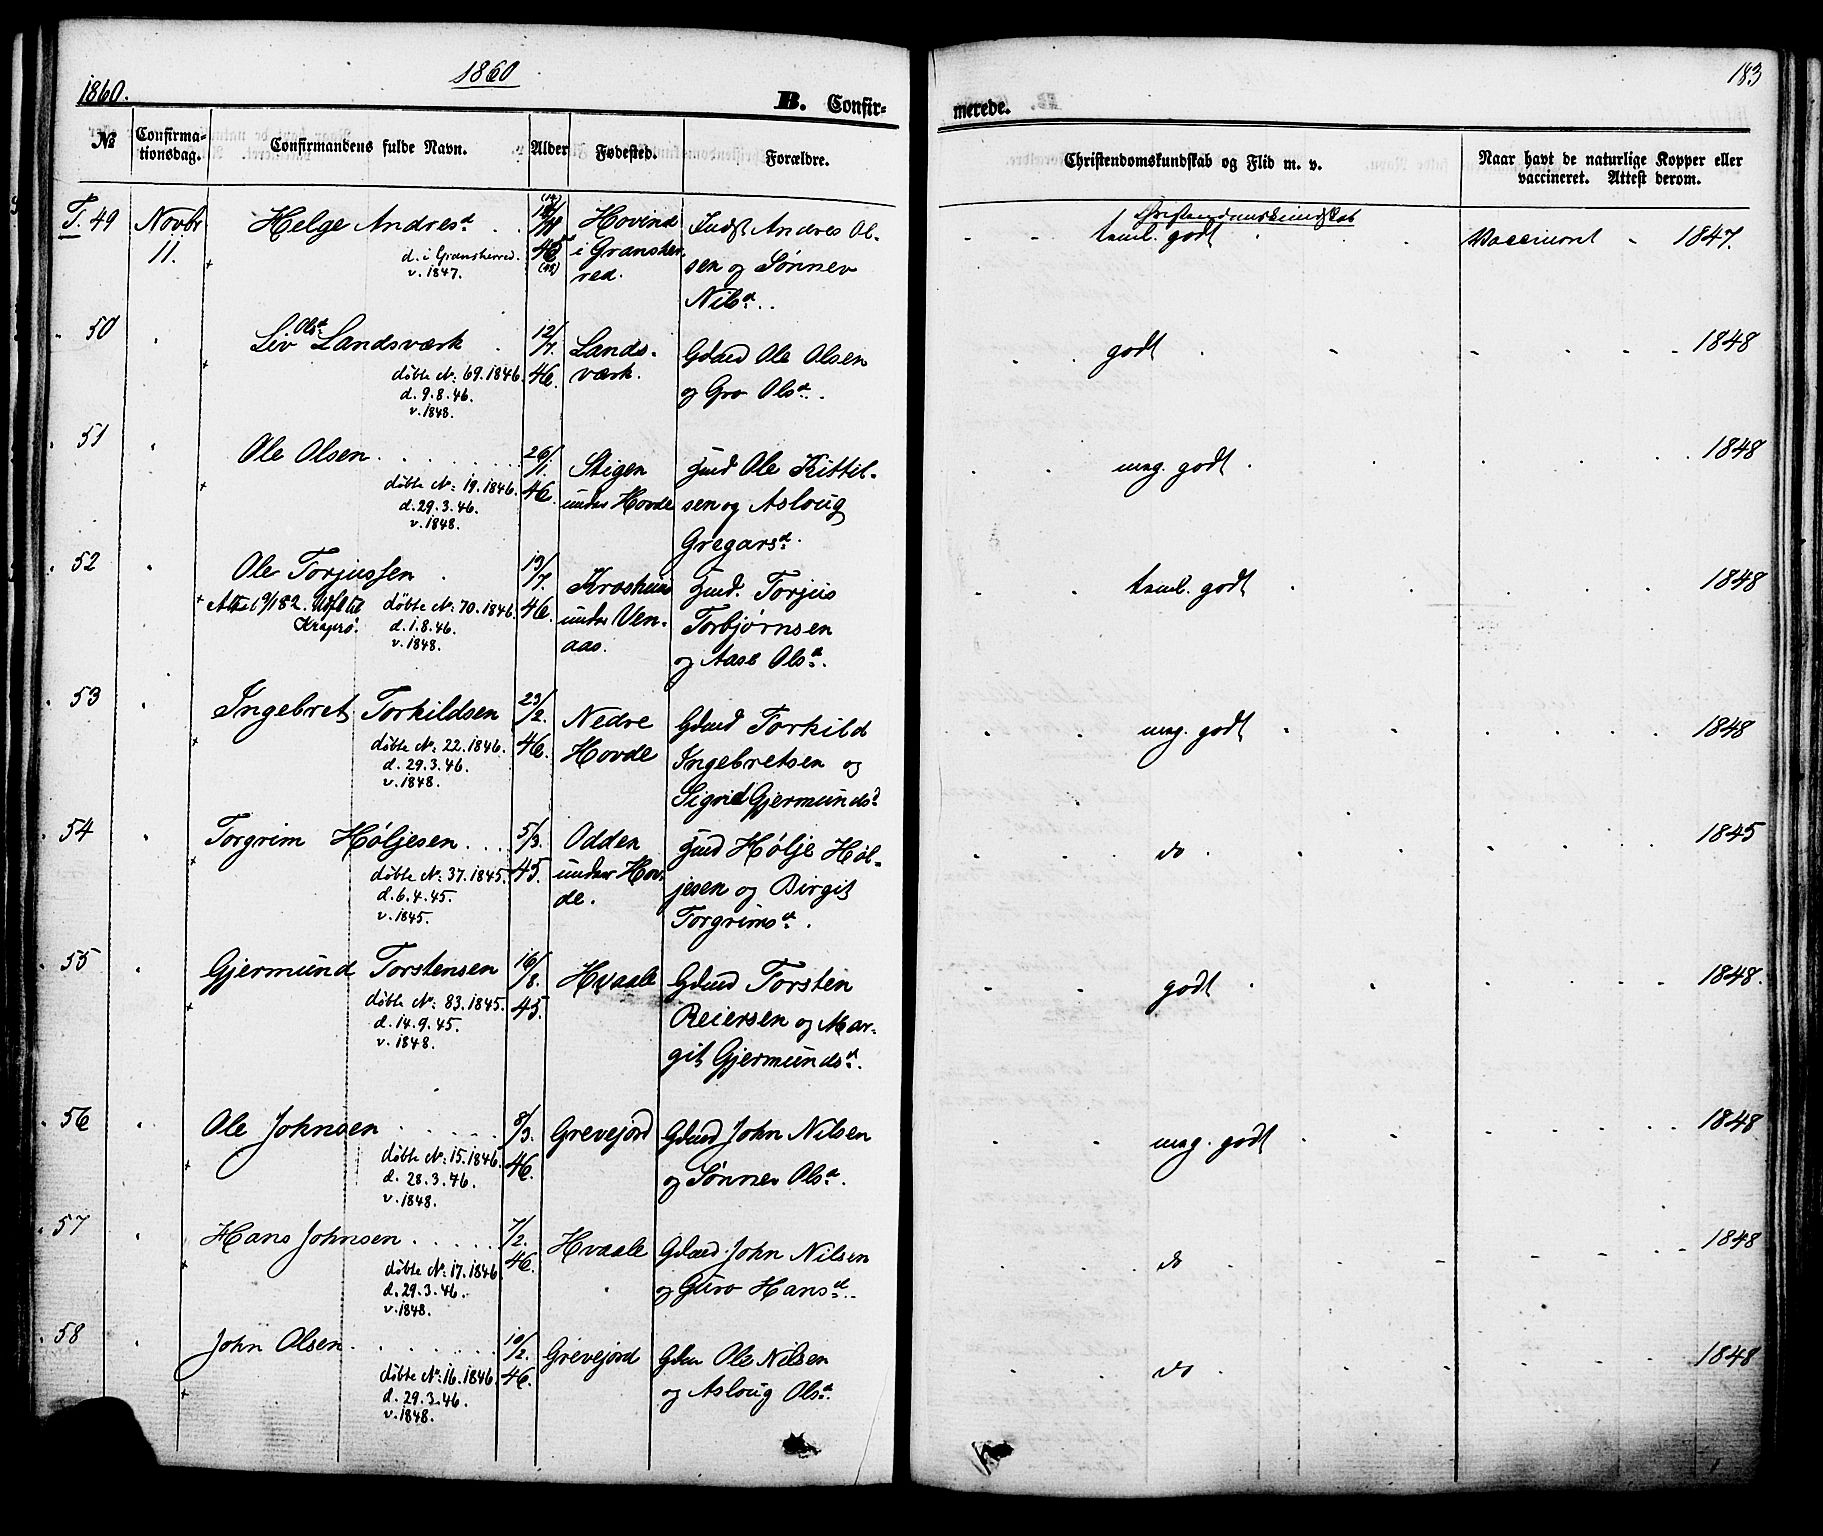 1860
1860.
B. Confir-
merede.
183
№
Confirma-
tionsdag.
Confirmandens fulde Navn.
Alder
Fødested.
Forældre.
Christendomskundskab og Flid m. v.
Naar havt de naturlige Kopper eller
vaccineret. Attest derom.
T. 49 Novbr 11. Helge Andresd.
d. i Gransherred.
v. 1847.
45
Hovind
i Gransher-
red.
Indst Andres Ol-
sen og Sønnev
Nilsd.
Christendomskundskab
teml. godt
Vaccineret 1847.
50 Liv Olsd. Landsværk
døbte No: 69. 1846.
d. 9.8.46.
v. 1848.
12/7.
46.
Lands-
værk.
Gdmd Ole Olsen
og Gro Olsd.
godt
1848
51 Ole Olsen
døbte No: 19. 1846.
d. 29.3.46.
v. 1848.
26/1.
46.
Stigen
under Hovde
Hmd Ole Kittil-
sen og Asloug
Gregarsd.
meg. godt
1848
52 Ole Torjussen
Attest 9/1 82. Udfl. til
Kragerø.
døbte No: 70. 1846.
d. 1.8.46.
v. 1848.
19/7.
46.
under Ven-
aas.
Hmd. Torjus
Torbjørnsen
og Aase Olsd.
teml. godt
1848
53 Ingebret Torkildsen
døbte No: 22. 1846.
d. 29.3.46.
v. 1848.
23/2.
46.
Nedre
Hovde
Gdmd Torkild
Ingebretsen og
Sigrid Gjermundsd
meg. godt
1848
54 Torgrim Høljesen
døbte No: 37. 1845.
d. 6.4.45.
v. 1845.
5/3.
45.
Odden
under Hov-
de.
Hmd Hølje Høl-
jesen og Birgit
Torgrimsd.
do
1845
55 Gjermund Torstensen
døbte No: 83. 1845.
d. 14.9.45.
v. 1848.
16/8.
45.
Hvaale
Gdmd Torsten
Reiersen og Mar-
git Gjermundsd.
godt
1848.
56 Ole Johnsen
døbte No: 15. 1846.
d. 28.3.46.
v. 1848.
8/3.
46.
Grevejord
Gdmd John Nilsen
og Sønnev Olsd.
meg. godt
1848
57 Hans Johnsen
døbte No: 17. 1846.
d. 29.3.46.
v. 1848.
7/2.
46.
Hvaale
Gdmd. John Nilsen
og Guro Hansd.
do
1848
58 John Olsen
døbte No: 16. 1846.
d. 29.3.46.
v. 1848.
10/2.
46.
Grevejord
Gdm Ole Nilsen
og Asloug Olsd.
do
1848